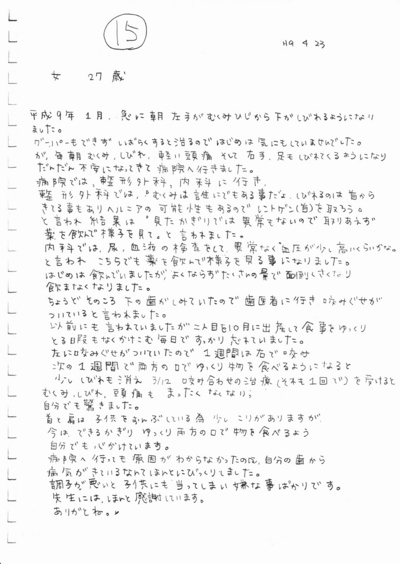 15
H9 4 23
女 27歳
平成9年 1月、急に朝 左手がむくみひじから下がしびれるようになり
ました。
グーパーもできず しばらくすると治るのではじめは気にもしていませんでした。
が、毎朝むくみ、しびれ、軽い頭痛 そして 右手、足もしびれてくるようになり
だんだん不安になってきて病院へ行きました。
病院では、整形外科、内科に行き、
整形外科では、"むくみは誰にでもある事だよ、しびれるのは首から
きてる事もありヘルニアの可能性もあるのでレントゲン(首)を取ろう。
と言われ 結果は "見たかぎりでは異常もないので取りあえず
薬を飲んで様子を見て。と言われました。
内科では、尿、血液の検査をして、異常なく血圧が少し高いくらいかな。
と言われ こちらでも薬を飲んで様子を見る事になりました。
はじめは飲んでいましたが、よくならずたくさんの量で面倒くさくなり
飲まなくなりました。
ちょうどそのころ 下の歯がしみていたので歯医者に行き 咬みぐせが
ついていると言われました。
以前にも言われていましたが二人目を10月に出産して食事をゆっくり
とる日間もなくかけこむ毎日ですっかり忘れていました。
左に咬みぐせがついていたので 1週間は右で咬み
次の1週間で両方の口でゆっくり物を食べるようになると
少ししびれも消え 3/12 咬み合わせの治療(それも1回で)を受けると
むくみ、しびれ、頭痛も まったくなくなり、
自分でも驚きました。
首と肩は子供をおんぶしている為 少しこりがありますが
今は、できるかぎり ゆっくり両方の口で物を食べるよう
自分でも心がけています。
病院へ行っても原因がわからなかったのに、自分の歯から
病気がきているなんてほんとにびっくりしました。
調子が悪いと子供にも当ってしまい嫌な事ばかりです。
先生には、ほんと感謝しています。
ありがとね。